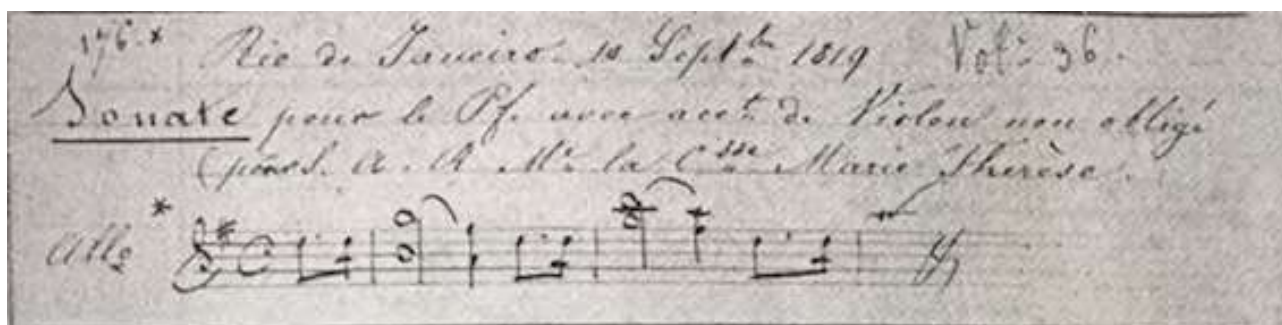 176.* Rio de Janeiro. 10 Septbre 1819 Vol: 36.
Sonate pour le Pf. avec acct. de Violon non obligé
(pour S. A. R. Me. la Csse Marie Thérèse.
* Allo